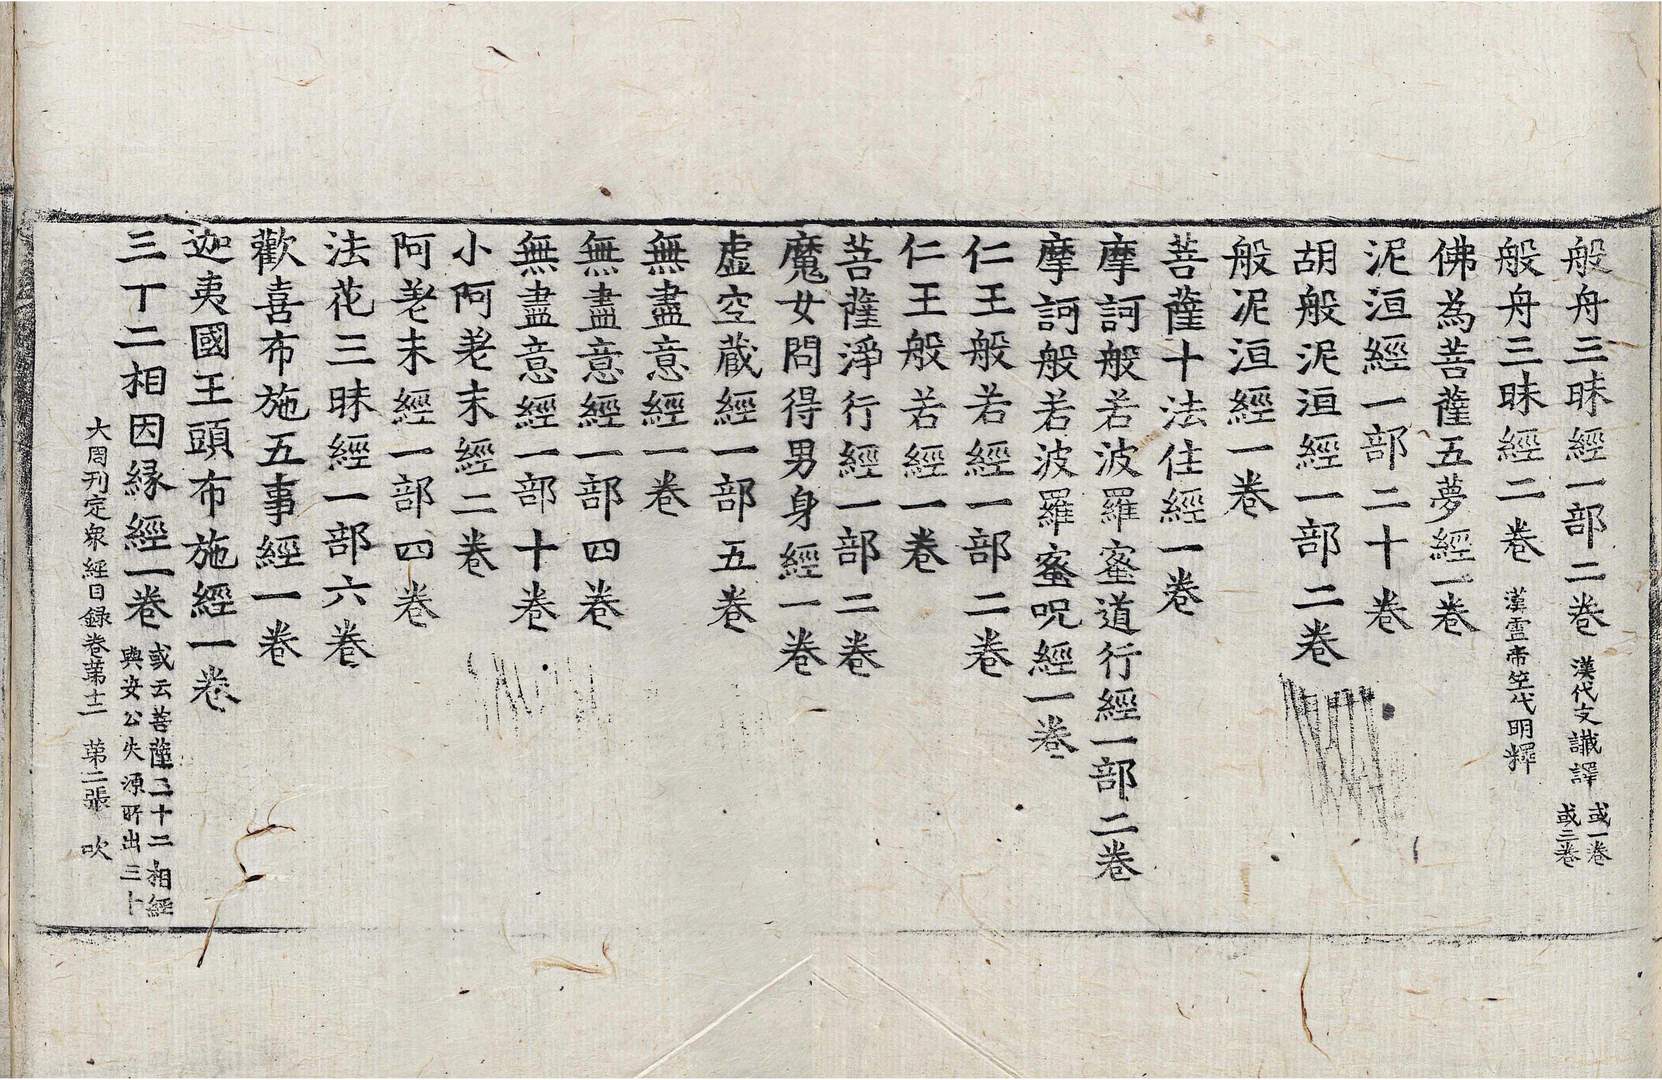 般舟三昧經一部二卷 漢代支讖譯 或一卷 或三卷
般舟三昧經二卷 漢靈帝竺代明釋
佛為菩薩五夢經一卷
泥洹經一部二十卷
胡般泥洹經一部二卷
般泥洹經一卷
菩薩十法住經一卷
摩訶般若波羅蜜道行經一部二卷
摩訶般若波羅蜜呪經一卷
仁王般若經一部二卷
仁王般若經一卷
菩薩淨行經一部二卷
魔女問得男身經一卷
虛空藏經一部五卷
無盡意經一卷
無盡意經一部四卷
無盡意經一部十卷
小阿差末經二卷
阿差末經一部四卷
法花三昧經一部六卷
歡喜布施五事經一卷
迦夷國王頭布施經一卷
三丁二相因緣經一卷 或云菩薩三十二相經
與安公失源所出三十
大周刊定衆經目録卷第十二 第二張 吹